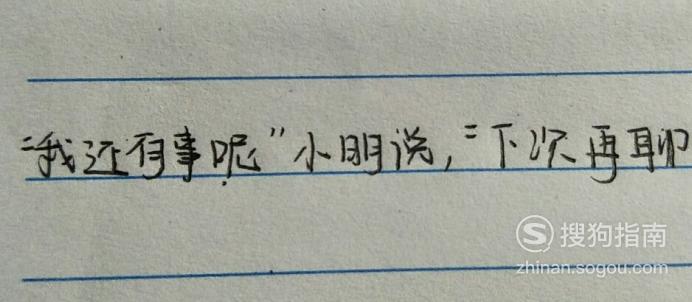 “我还有事呢”小明说，“下次再聊
搜狗指南
zhinan.sogou.com